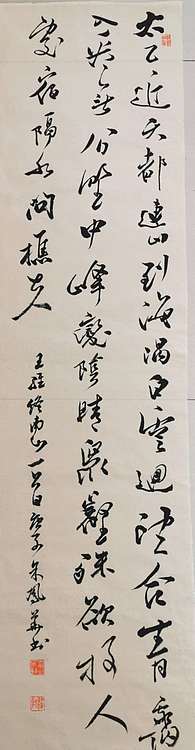 太乙近天都連山到海隅白雲迴望合青靄
入看無分野中峰變陰晴衆壑殊欲投人
處宿隔水問樵夫
王維終南山一首庚子朱鳳華书